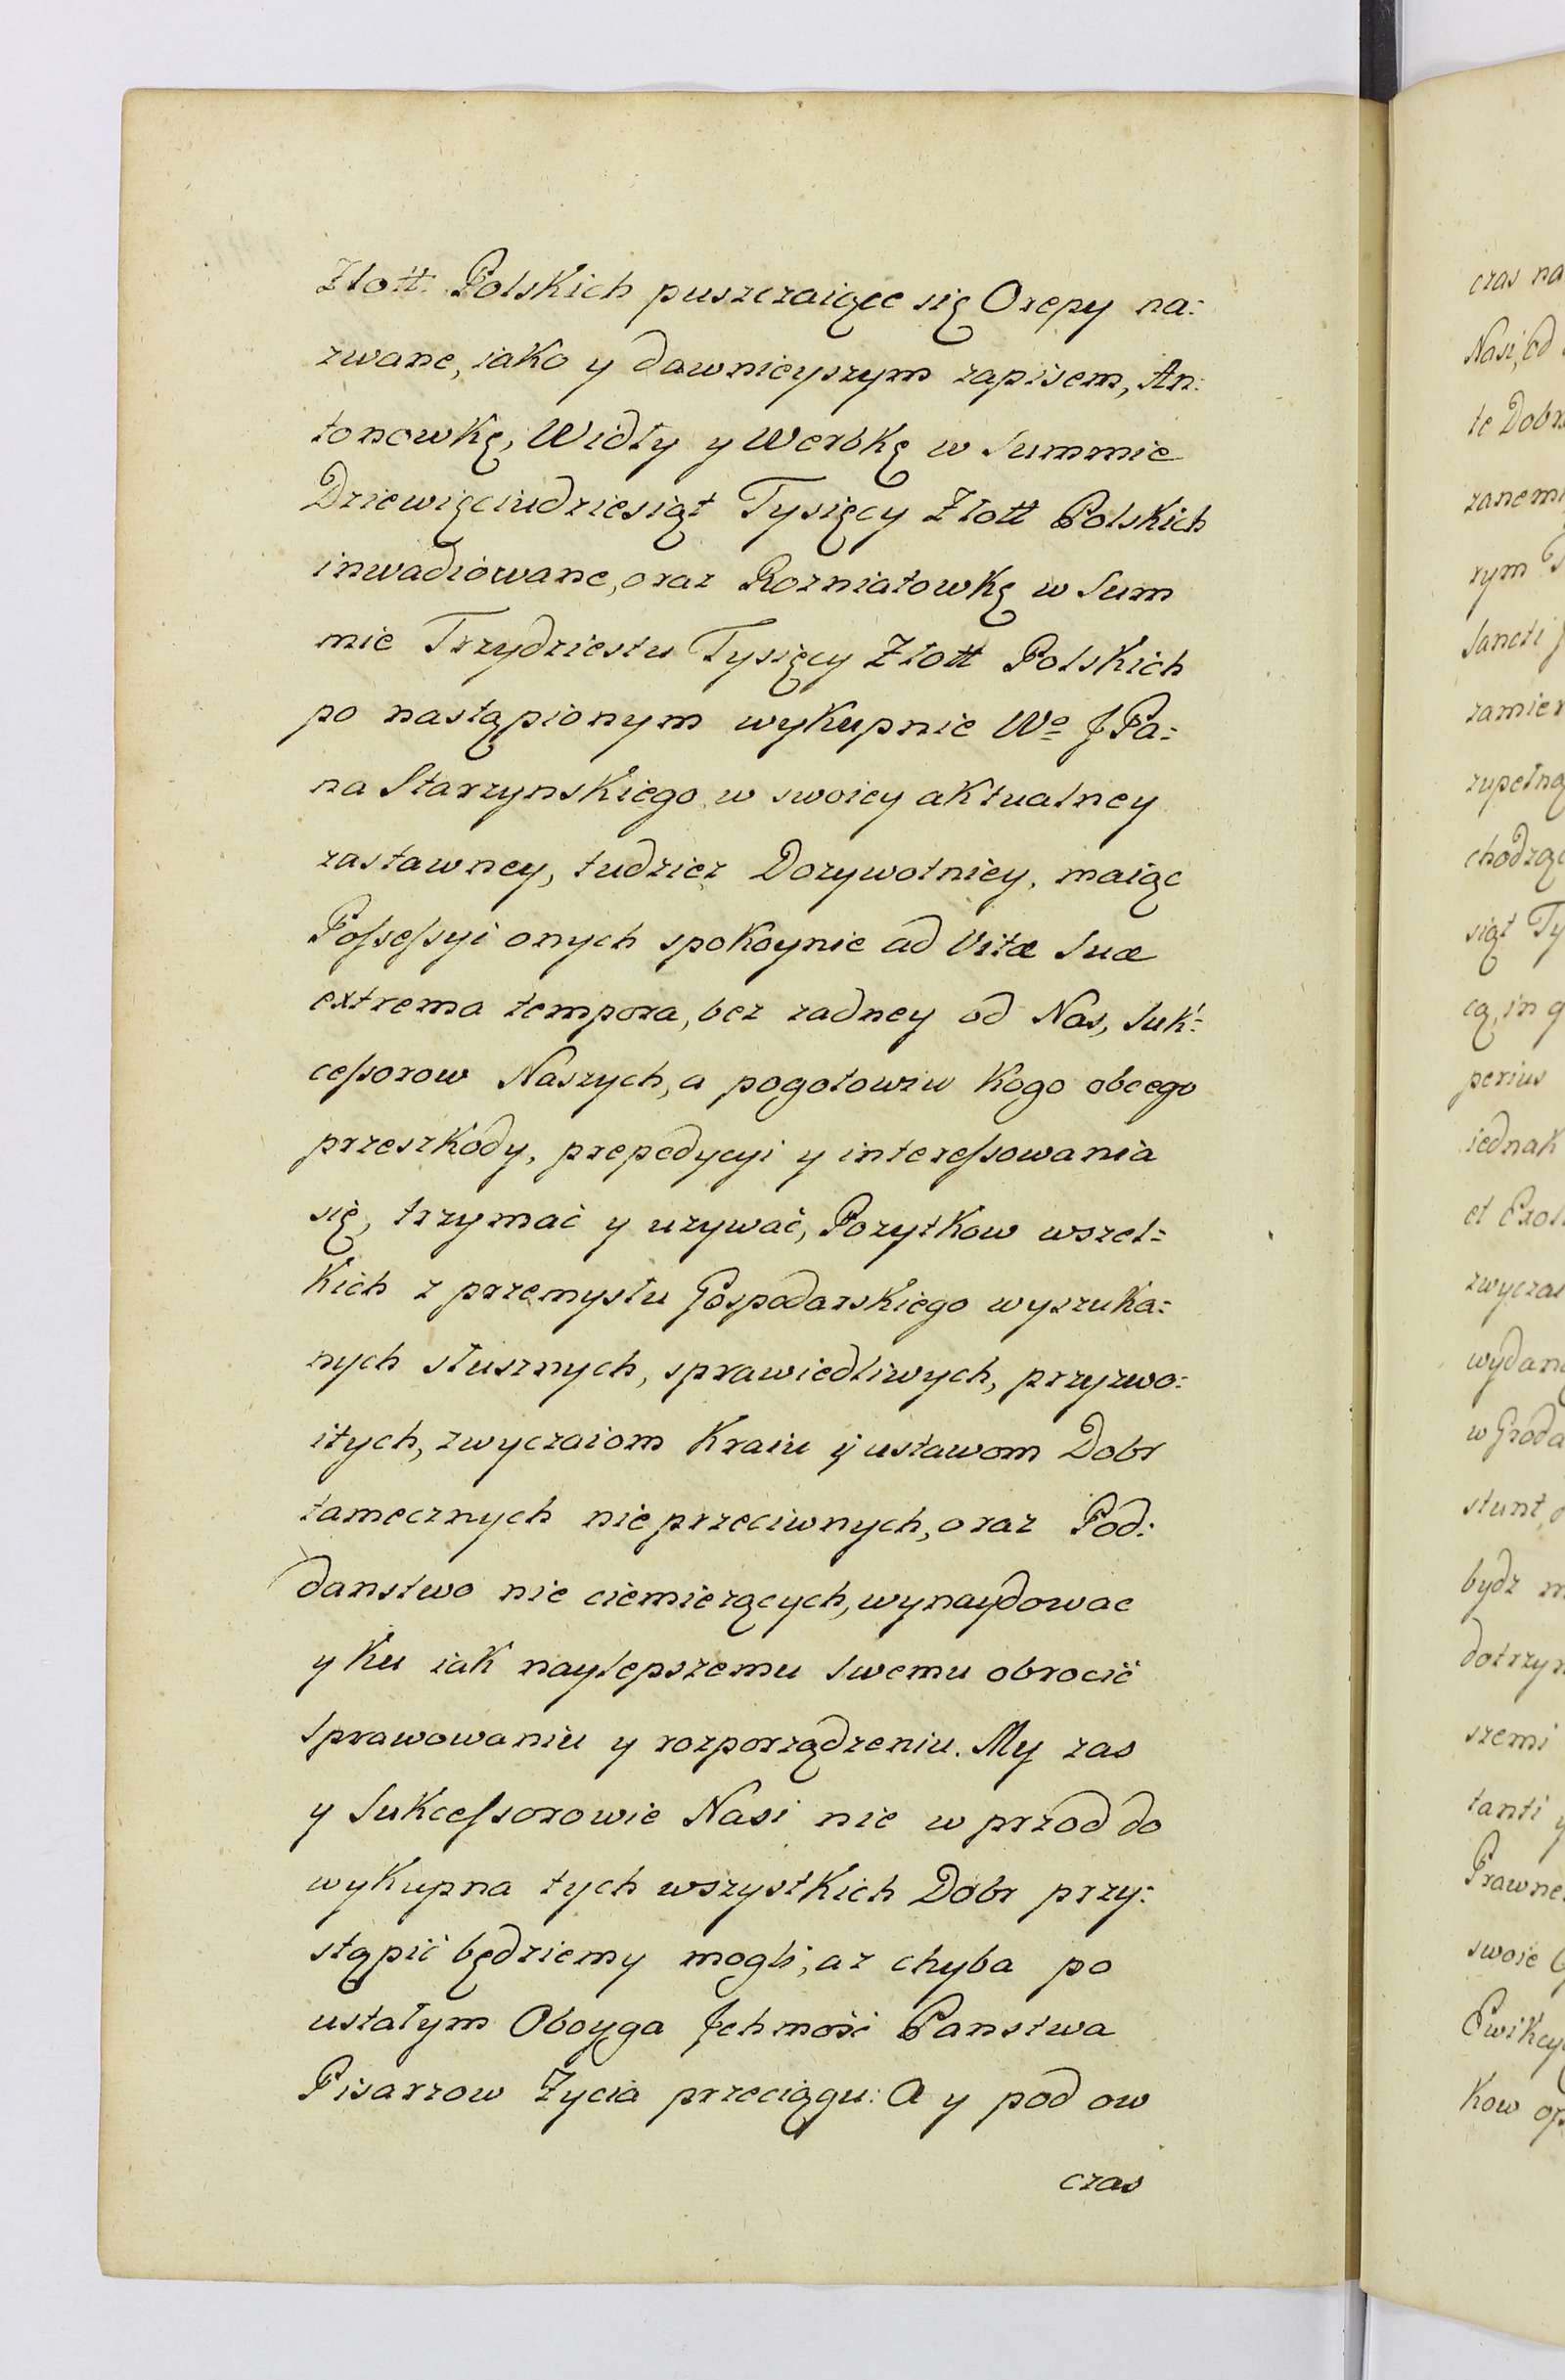 Złott: Polskich puszczaiące się Orepy na:
zwane, iako y dawnieyszym zapisem, An:
tonowkę, Widły y Werbkę w Summie
Dziewięciudziesiąt Tysięcy Złott Polskich
inwadiowane, oraz Rozniatowkę w Sum
mie Trzydziestu Tysięcy Złott Polskich
po nastąpionym wykupnie Wo JPa:
na Starzynskiego w swoiey aktualney
zastawney, tudziez Dozywotniey, maiąc
Possessyi onych spokoynie ad Vitæ Suæ
extrema tempora, bez zadney od Nas, Suk:
cessorow Naszych, a pogotowiu kogo obcego
przeszkody, prepedycyi y interessowania
się, trzymać y uzywać, Pozytkow wszel:
kich z przemysłu Gospodarskiego wyszuka:
nych słusznych, sprawiedliwych, przyzwo:
itych, zwyczaiom Kraiu y ustawom Dobr
tamecznych nie przeciwnych, oraz Pod:
danstwo nie ciemiezących, wynaydowac
y ku iak naylepszemu swemu obrocić
sprawowaniu y rozporządzeniu. My zas
y Sukcessorowie Nasi nie w przod do
wykupna tych wszystkich Dobr przy:
stąpić będziemy mogli, az chyba po
ustałym Oboyga Jchmość Panstwa
Pisarzow Zycia przeciągu: A y pod ow
czas
czas na
Nasi, od
te Dobr
zanemi
rym T
Sancti J
zamier
zupełną
chodząc
siąt Ty
cą, in q
perius
iednak
et Exol
zwyczai
wydane
w Groda
stunt,
bydz m
dotrzym
szemi
tanti y
Prawne
swoie
Ewikcy
kow